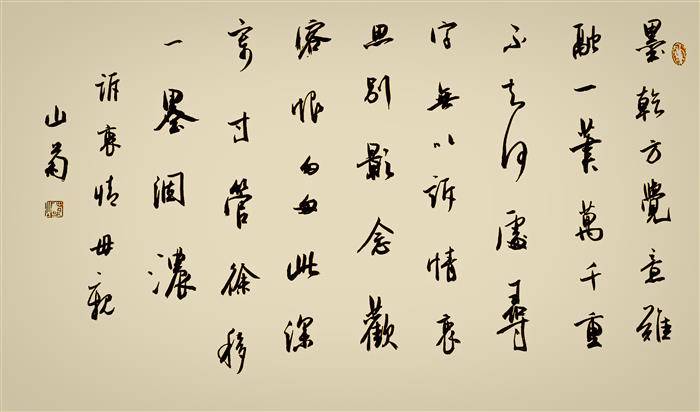 墨乾方覺意難
融一筆萬千重
不知何處尋
字無以訴情衷
思別影念歡
容恨匆匆此深
寄寸管徐移
一墨涸濃
訴衷情母親
山菊